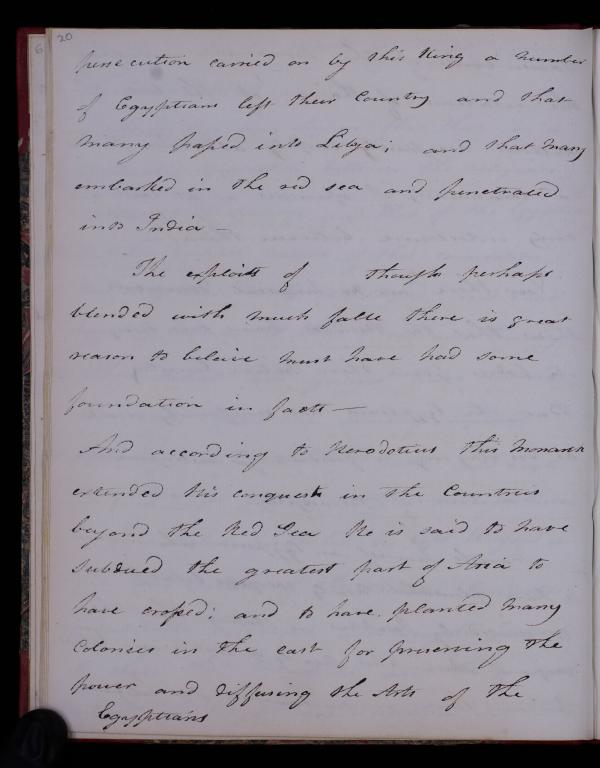 20
6
persecution carried on by this King a number
of Egyptians left their Country and that
many passed into Libya; and that many
embarked in the red sea and penetrated
into India —
The exploits of though perhaps
blended with much false there is great
reason to beleive must have had some
foundation in facts —
And according to Herodotus this Monarch
extended his conquests in the Countries
beyond the Red Sea He is said to have
subdued the greatest part of Asia to
have crossed; and to have planted many
Colonies in the east for preserving the
power and diffusing the Arts of the
Egyptians